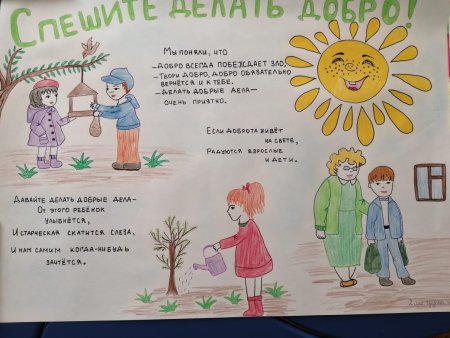 СПЕШИТЕ ДЕЛАТЬ ДОБРО!
Мы поняли, что
-ДОБРО ВСЕГДА ПОБЕЖДАЕТ ЗЛО,
-ТВОРИ ДОБРО, ДОБРО ОБЯЗАТЕЛЬНО
ВЕРНЁТСЯ И К ТЕБЕ.
-ДЕЛАТЬ ДОБРЫЕ ДЕЛА-
ОЧЕНЬ ПРИЯТНО.
ЕСЛИ ДОБРОТА ЖИВЁТ
НА СВЕТЕ,
РАДУЮТСЯ ВЗРОСЛЫЕ
И ДЕТИ.
ДАВАЙТЕ ДЕЛАТЬ ДОБРЫЕ ДЕЛА-
ОТ ЭТОГО РЕБЁНОК
УЛЫБНЁТСЯ,
И СТАРЧЕСКАЯ СКАТИТСЯ СЛЕЗА,
И НАМ САМИМ КОГДА-НИБУДЬ
ЗАЧТЁТСЯ.